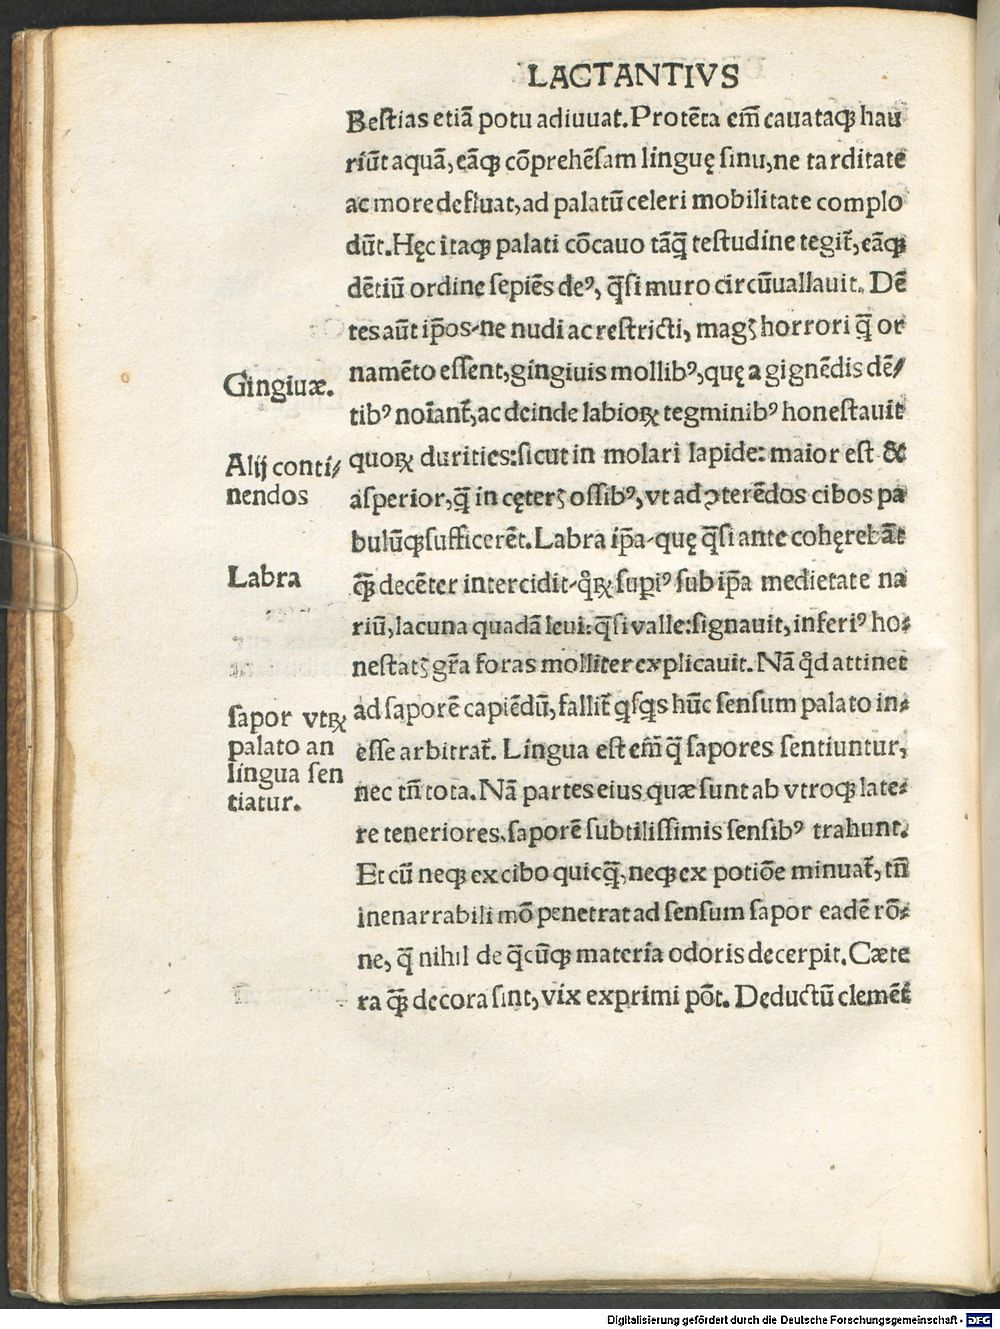 LACTANTIVS
Beſtias etiã potu adiuuat. Protẽta em̃ cauataqꝫ hau
riũt aquã, eãqꝫ cõprehẽſam linguę ſinu, ne tarditate
ac more defluat, ad palatũ celeri mobilitate complo
dũt. Hęc itaqꝫ palati cõcauo tãq̃ teſtudine tegit̃, eãqꝫ
dẽtiũ ordine ſepiẽs deꝰ, q̃ſi muro circũuallauit. Dẽ
tes aũt ip̃os-ne nudi ac reſtricti, magꝭ horrori q̃ or
namẽto eſſent, gingiuis mollibꝰ, quę a gignẽdis dẽ⸗
tibꝰ noĩant̃, ac deinde labioꝝ tegminibꝰ honeſtauit
Gingiuæ.
quoꝝ durities: ſicut in molari lapide: maior est &
aſperior, q̃ in cęterꝭ oſſibꝰ, vt ad ꝯterẽdos cibos pa
Alij conti⸗
nendos
bulũqꝫ ſufficerẽt. Labra ip̃a-quę q̃ſi ante cohęrebãt
q̃ꝫ decẽter intercidit-qͦꝝ ſuꝑiꝰ ſub ip̃a medietate na
Labra
riũ, lacuna quadã leui: q̃ſi valle: ſignauit, inferiꝰ ho⸗
neſtatꝭ gr̃a foras molliter explicauit. Nã qͦd attinet
ad ſaporẽ capiẽdũ, fallit̃ qͥſqͥs hũc ſenſum palato in⸗
eſſe arbitrat̃. Lingua eſt em̃ q̃ ſapores ſentiuntur,
ſapor vtꝝ
palato an
lingua ſen
tiatur.
nec tñ tota. Nã partes eius quæ ſunt ab vtroqꝫ late⸗
re teneriores, ſaporẽ ſubtiliſſimis ſenſibꝰ trahunt.
Et cũ neqꝫ ex cibo quicq̃, neqꝫ ex potiõe minuat̃, tñ
inenarrabili mõ penetrat ad ſenſum ſapor eadẽ rõ⸗
ne, q̃ nihil de q̃cũqꝫ materia odoris decerpit. Cæte
ra q̃ꝫ decora ſint, vix exprimi põt. Deductũ clemẽt
Digitalisierung gefördert durch die Deutsche Forschungsgemeinschaft - DFG